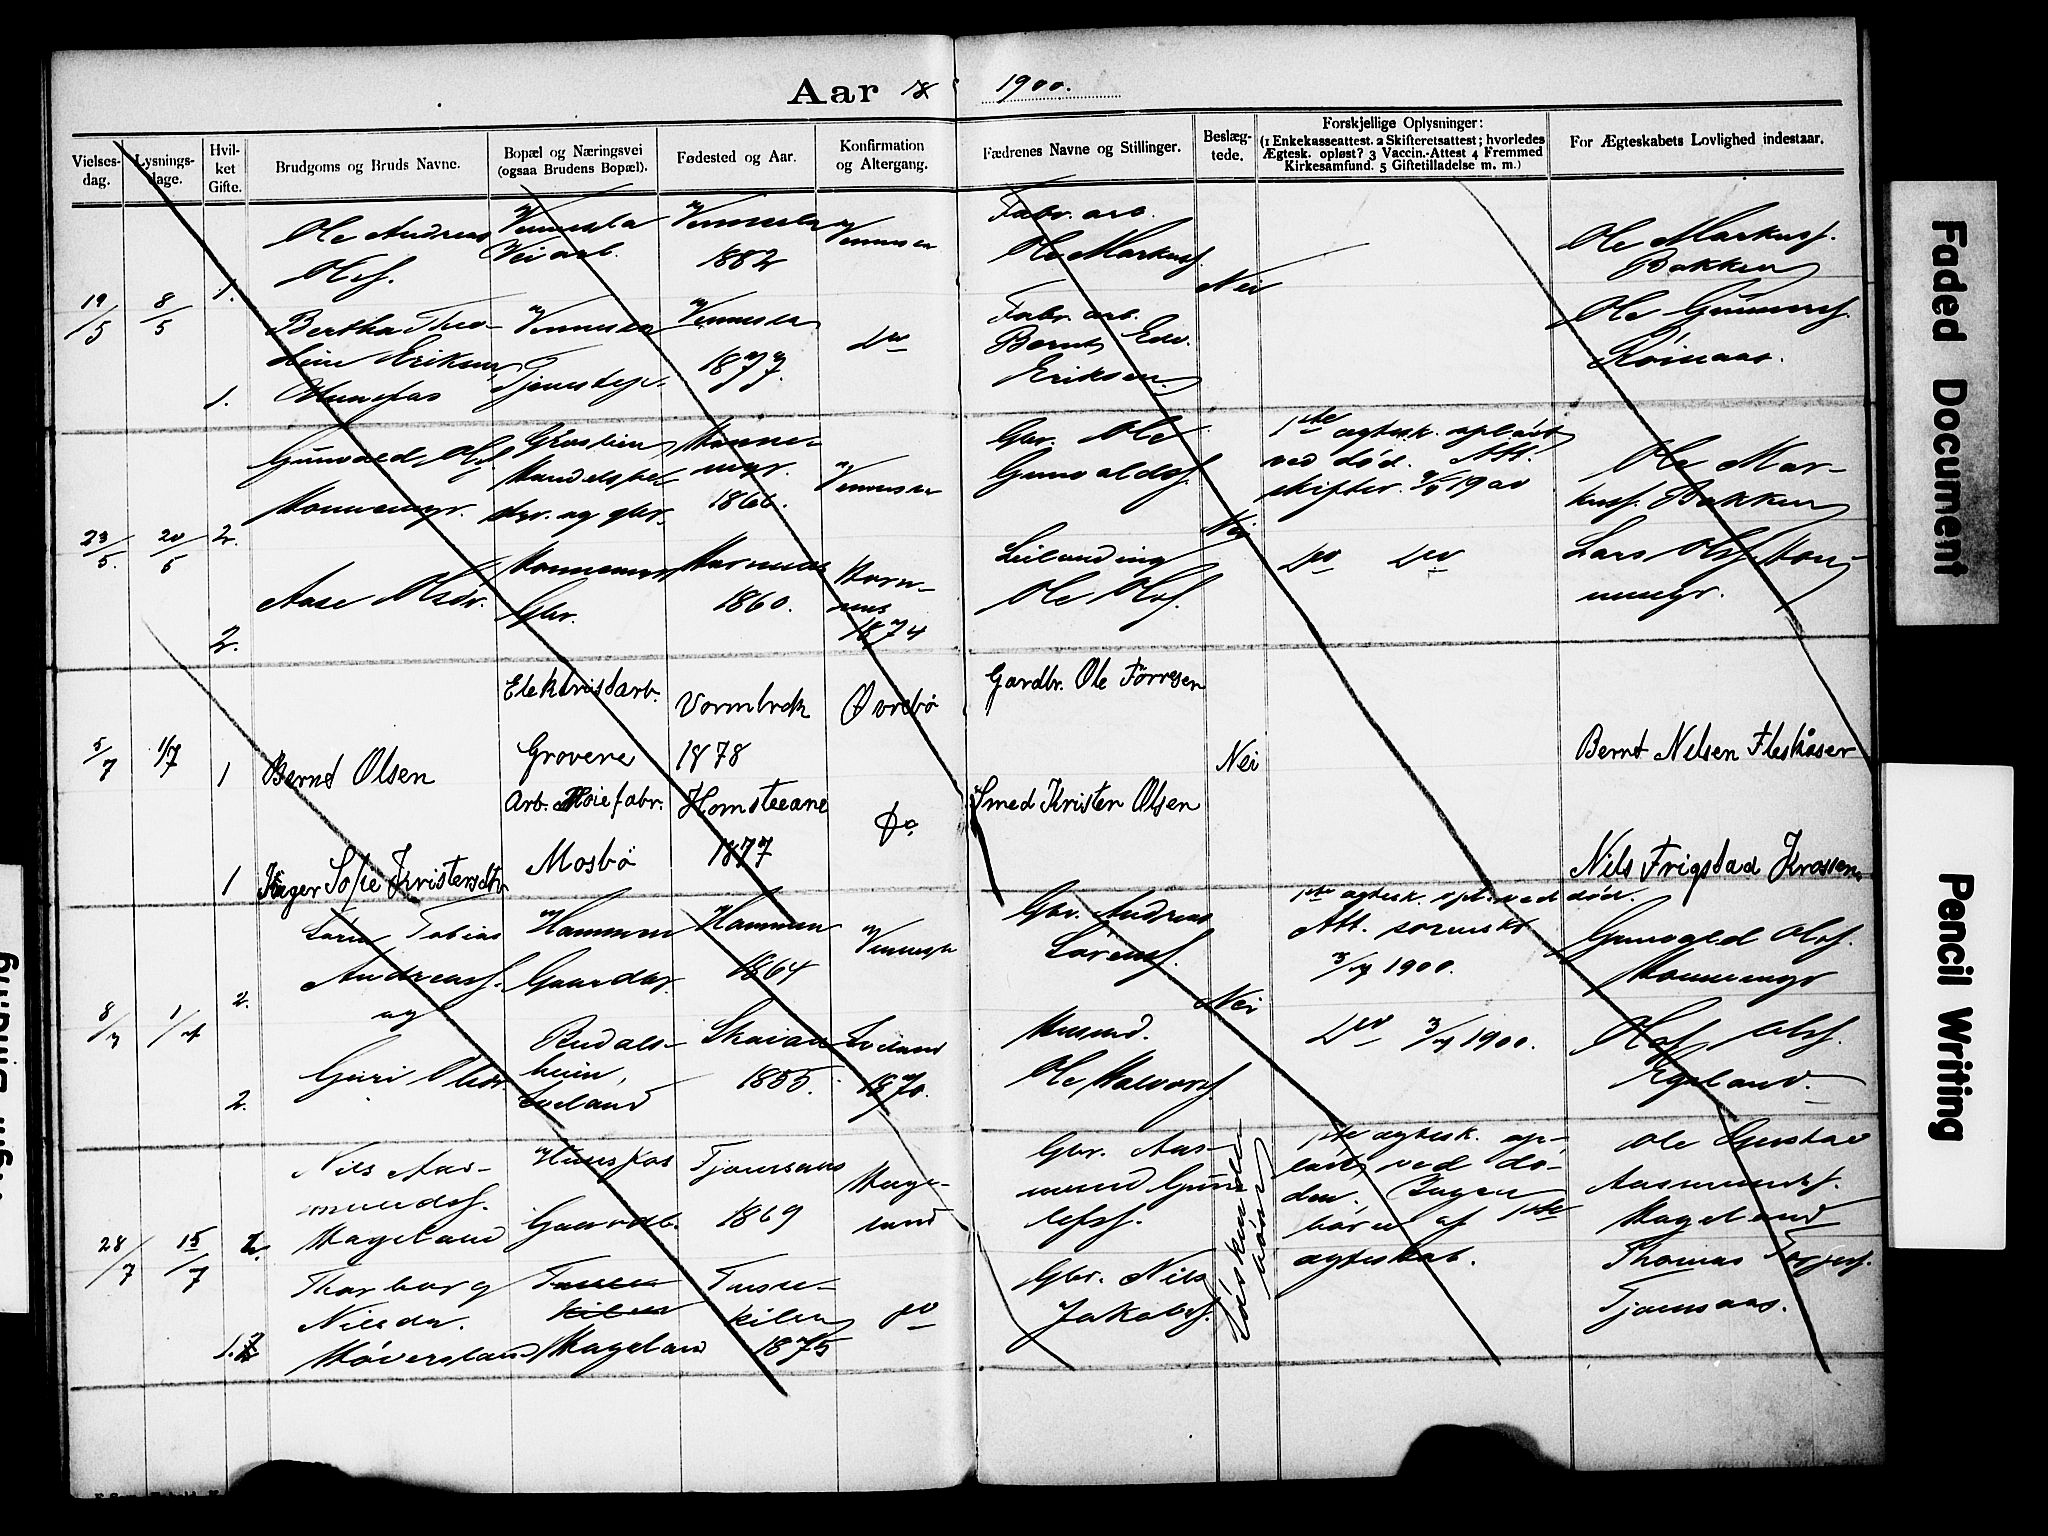 Aar 18 1900.
Vielses-
dag.
Lysnings-
dage.
Hvil-
ket
Gifte.
Brudgoms og Bruds Navne.
Bopæl og Næringsvei
(ogsaa Brudens Bopæl).
Fødested og Aar.
Konfirmation
og Altergang.
Fædrenes Navne og Stillinger.
Beslæg-
tede.
Forskjellige Oplysninger:
(1 Enkekasseattest. 2 Skifteretsattest; hvorledes
Ægtesk. opløst? 3 Vaccin.-Attest 4 Fremmed
Kirkesamfund. 5 Giftetilladelse m. m.)
For Ægteskabets Lovlighed indestaar.
19/5
8/5
1.
Ole Andreas
Olsf.
Vennesla
Veiarb.
Vennesla
1882
Vennesla
Fabr. arb.
Ole Markusf.
Nei
Ole Markusf.
Bakken
1.
Bertha Theo-
line Eriksen
Vennesla
Tjenestepi.
Vennesla
1877.
do
Fabr. arb.
Bernt Edv.
Eriksen
Ole Gunnersf.
Roinaas.
23/5.
20/5
2.
Gunvald Olsf.
Homnemyr.
Graslien
Handelsbet
dyr. og gbr.
Homne-
myr.
1866.
Vennesla
Gbr. Ole
Gunvaldsf.
Nei
1ste ægtesk. opløst
ved død. Att.
skifter. 1900
Ole Mar-
kusf. Bakken
2.
Aase Olsdr.
Homnemyr
Gbr.
Hornnes
1860.
Horn-
nes
1874
Leilænding
Ole Olsf.
do do
Lars Olsf. Hom-
nemyr.
5/7
1/7
1
Bernt Olsen
Elektrisitarb.
Grovene
Vormbrok
1878
Øvrebö
Gardbr. Ole Törresen
Nei
Bernt Nelsen Fleskåser
1
Inger Sofie Kristersdtr
Arb. Höiefabr.
Mosbö
Homsteane
1877
Do
Smed Krister Olsen
Nils Frigstad Krossen
8/7
1/7
2.
Søren Tobias
Andreasf.
og
Hammen
Gaardbr.
Hammen
1864
Vennesla
Gbr. Andreas
Sörensf.
Nei
1ste ægtesk. opl. ved död.
Att. sorenskr
3/7 1900.
Gunvald Olsf.
Homnemyr
2.
Guri Olsdr.
Iveland
1855.
Iveland
1870.
Husmd.
Ole Halvorsf.
do 3/7 1900.
Olaf Olsf.
Egeland.
28/7
15/7
2.
Nils Aas-
mundsf.
Hageland
Hunsfos
Gaardb.
Tjomsaas
1869
Hage-
land
Gbr. Aas-
mund Gun-
lefsf.
Söskende-
börn
1ste ægtesk. op-
löst ved dö-
den. Ingen
börn af 1ste
ægteskab.
Ole Gustav
Aasmundsf.
Hageland
1.
Thorborg
Nilsdr.
Höversland
Hageland
kilen
1875
do
Gbr. Nils
Jakobsf.
Thomas Torjusf.
Tjomsaas.
Faded Document
Pencil Writing
Tight Binding